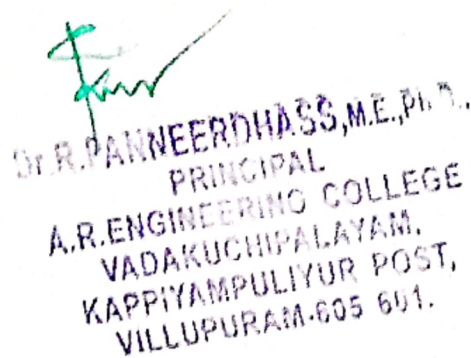 Dr.R.PANNEERDHASS,M.E.,Ph.D.,
PRINCIPAL
A.R.ENGINEERING COLLEGE
VADAKUCHIPALAYAM,
KAPPIYAMPULIYUR POST,
VILLUPURAM-605 601.